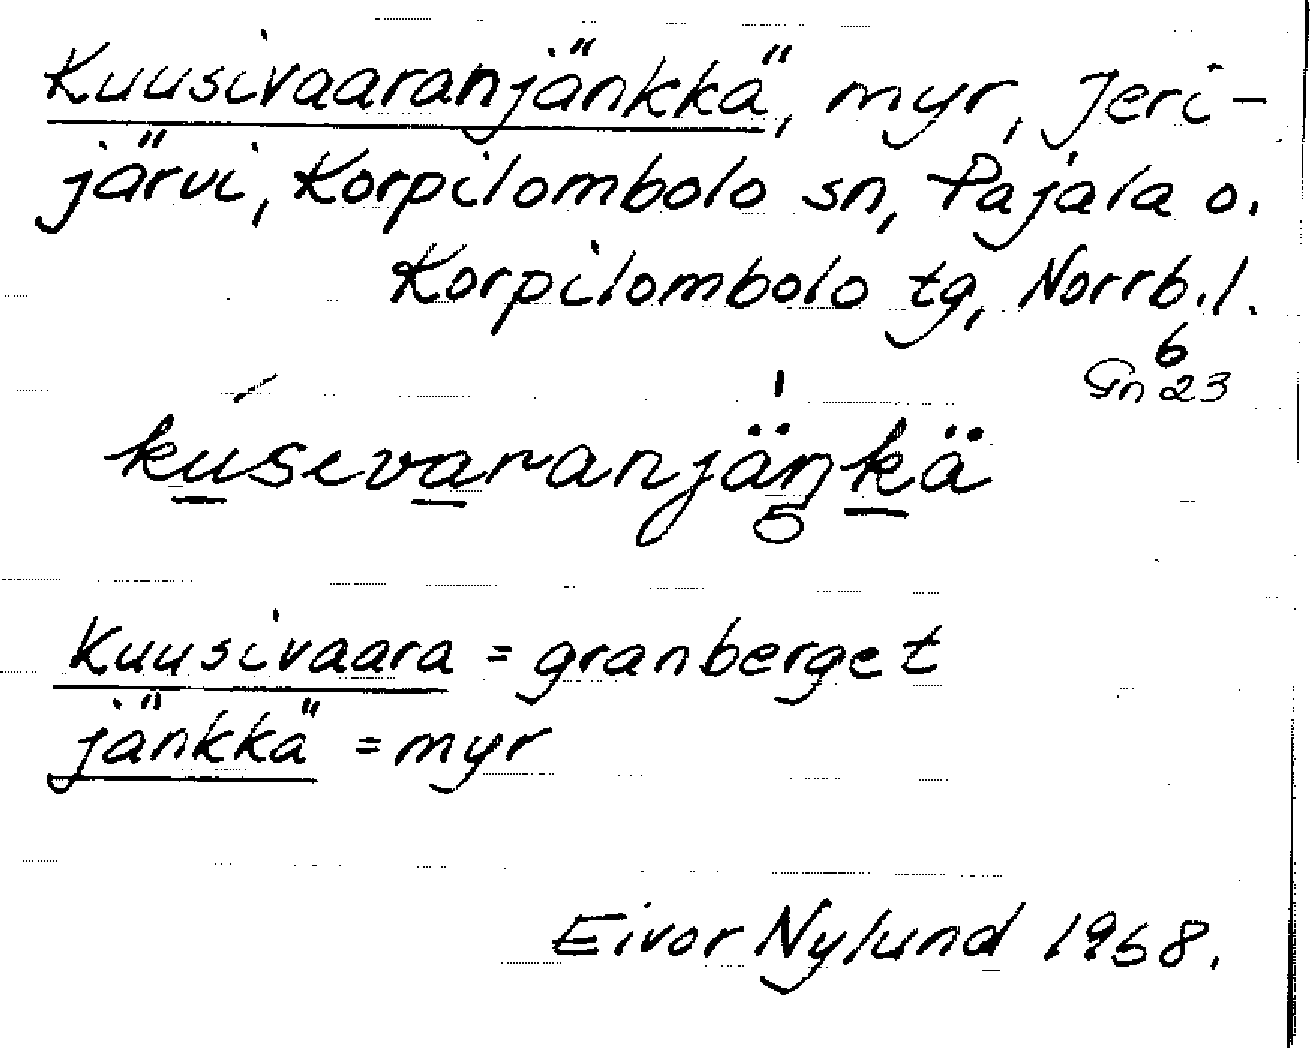 Kuusivaaranjänkkä, myr, Jeri-
järvi, Korpilombolo sn, Pajala o.
Korpilombolo tg, Norrb. l.
6
Gn 23
kusivaranjäŋkä
5
Kuusivaara = granberget
jänkkä = myr
Eivor Nylund 1968.